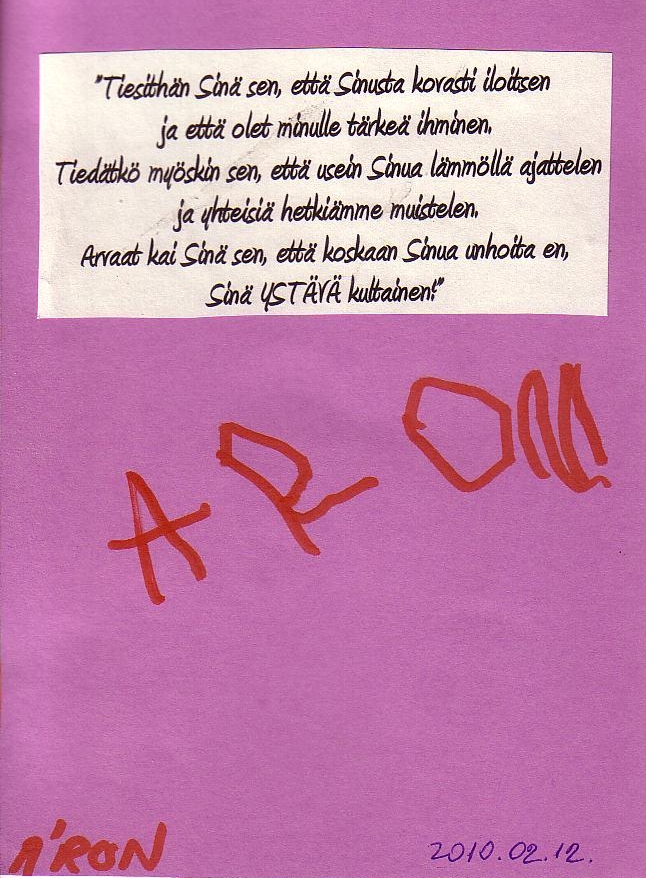 "Tiesithän Sinä sen, että Sinusta kovasti iloitsen
ja että olet minulle tärkeä ihminen.
Tiedätkö myöskin sen, että usein Sinua lämmöllä ajattelen
ja yhteisiä hetkiämme muistelen.
Arvaat kai Sinä sen, että koskaan Sinua unhoita en,
Sinä YSTÄVÄ kultainen!"
ARON
ÁRON
2010.02.12.